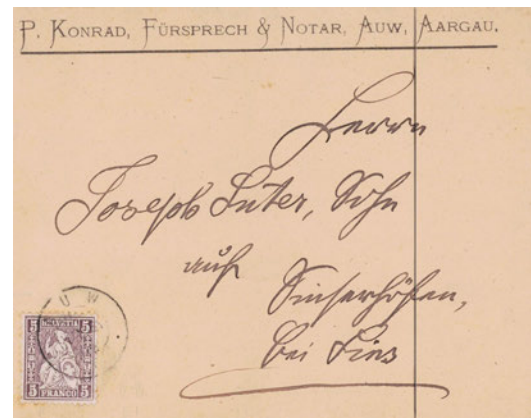 P. KONRAD, FÜRSPRECH & NOTAR, AUW, AARGAU.
Herrn
Joseph Suter, Sohn
auf
Sinserhöfen,
bei Sins
UW
5 HELVETIA 5
5 FRANCO 5